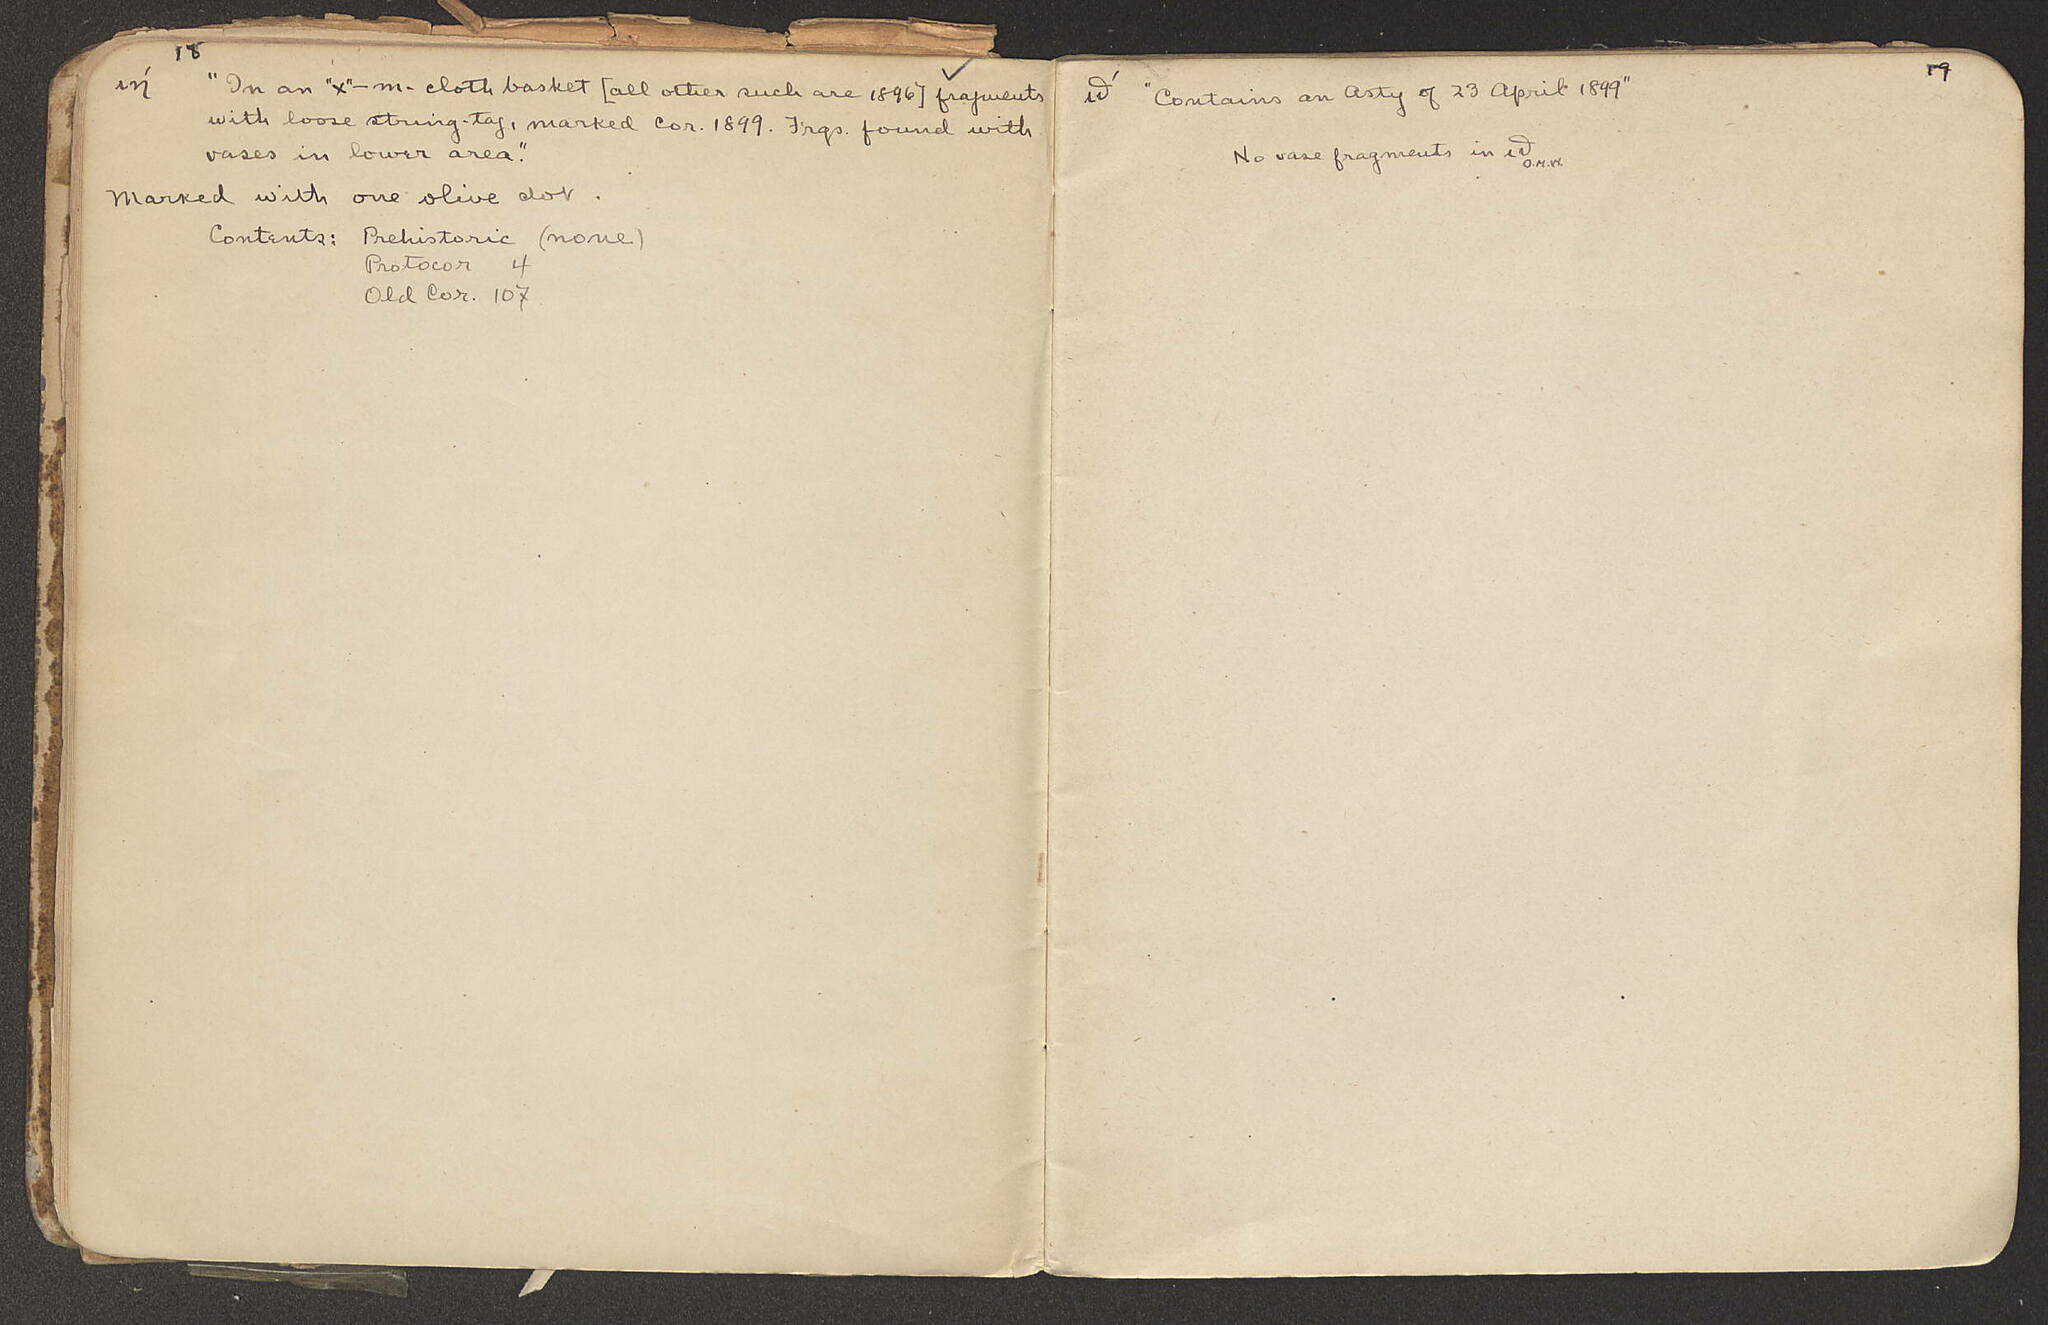 18
ιη' "In an "x"-m- cloth basket [all other such are 1896] fragments
with loose string-tag, marked Cor. 1899. Frgs. found with
vases in lower area."
Marked with one olive dot.
Contents: Prehistoric (none)
Protocor 4
Old Cor. 107
19
ιθ' "Contains an Asty of 23 April 1899"
No vase fragments in ιθ
O.M.W.